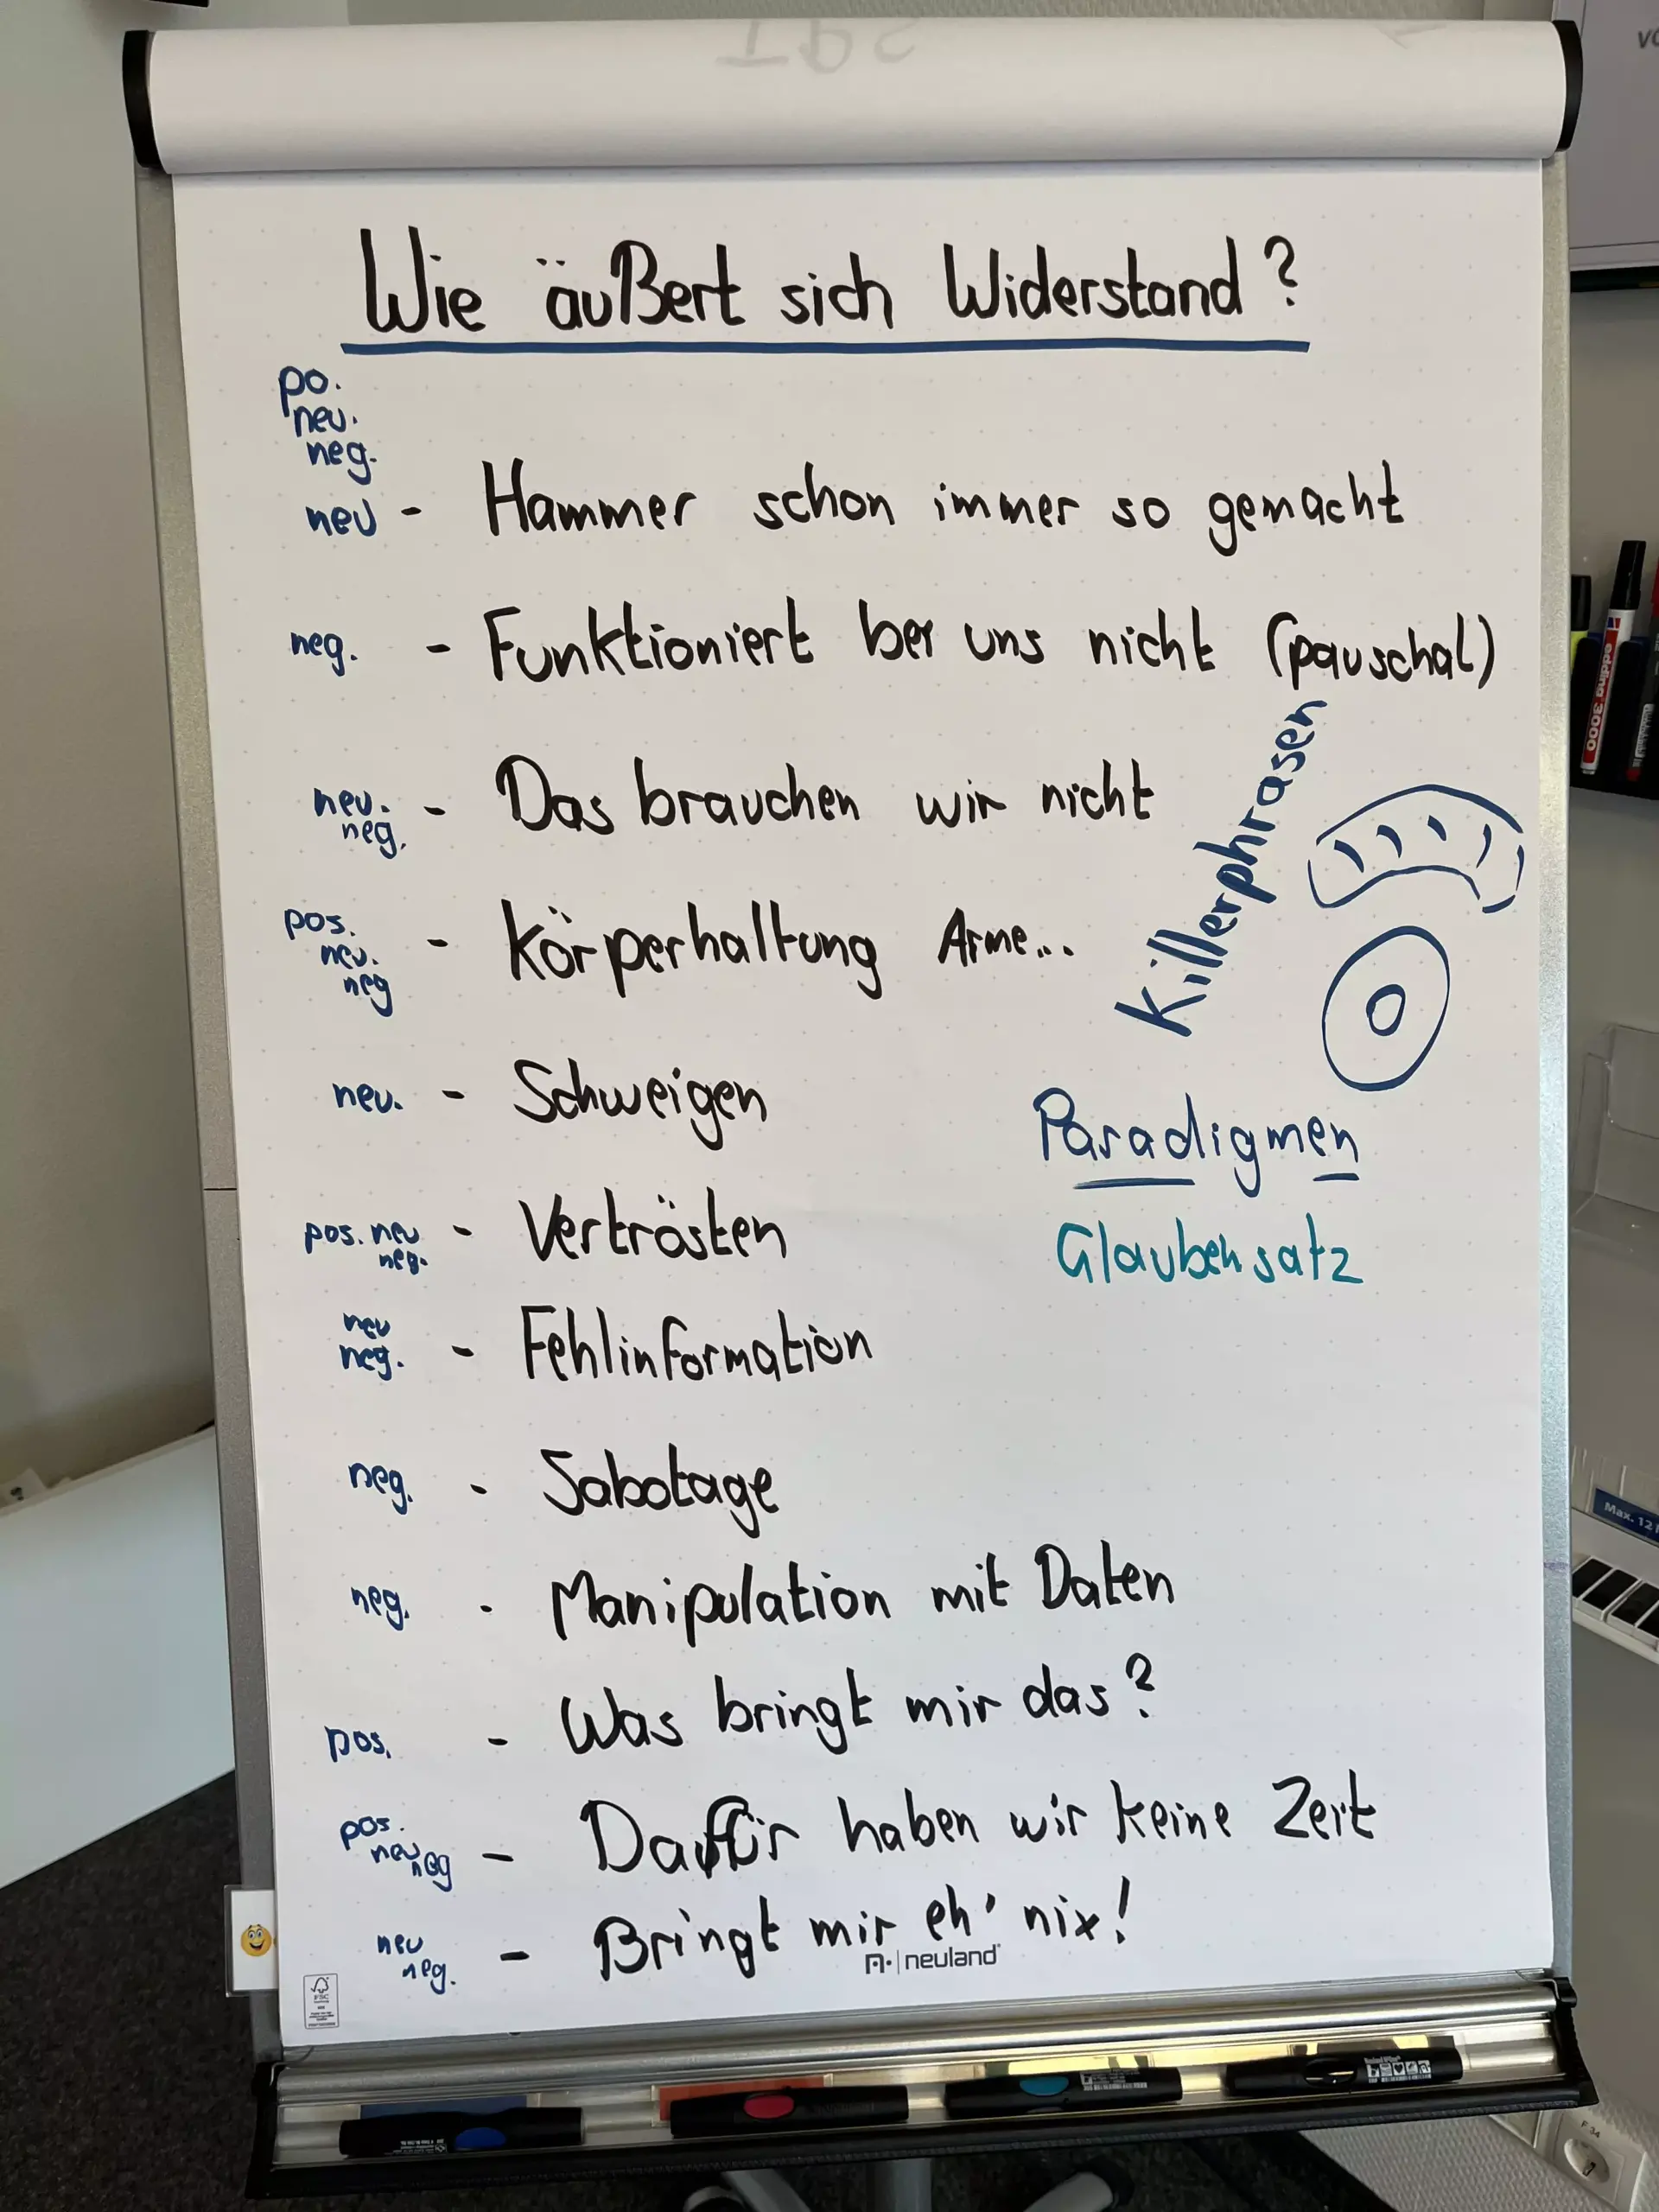 Wie äußert sich Widerstand?
po.
neu.
neg.
neu - Hammer schon immer so gemacht
neg. - Funktioniert bei uns nicht (pauschal)
Killerphrasen
neu. neg. - Das brauchen wir nicht
pos. neu. neg - Körperhaltung Arme...
neu. - Schweigen
Paradigmen
pos. neu neg. - Vertrösten
Glaubenssatz
neu neg. - Fehlinformation
neg. - Sabotage
neg. - Manipulation mit Daten
pos. - Was bringt mir das?
pos. neu neg - Dafür haben wir keine Zeit
neu neg. - Bringt mir eh' nix!
neuland
FSC
edding 3000
Max. 12
F 34